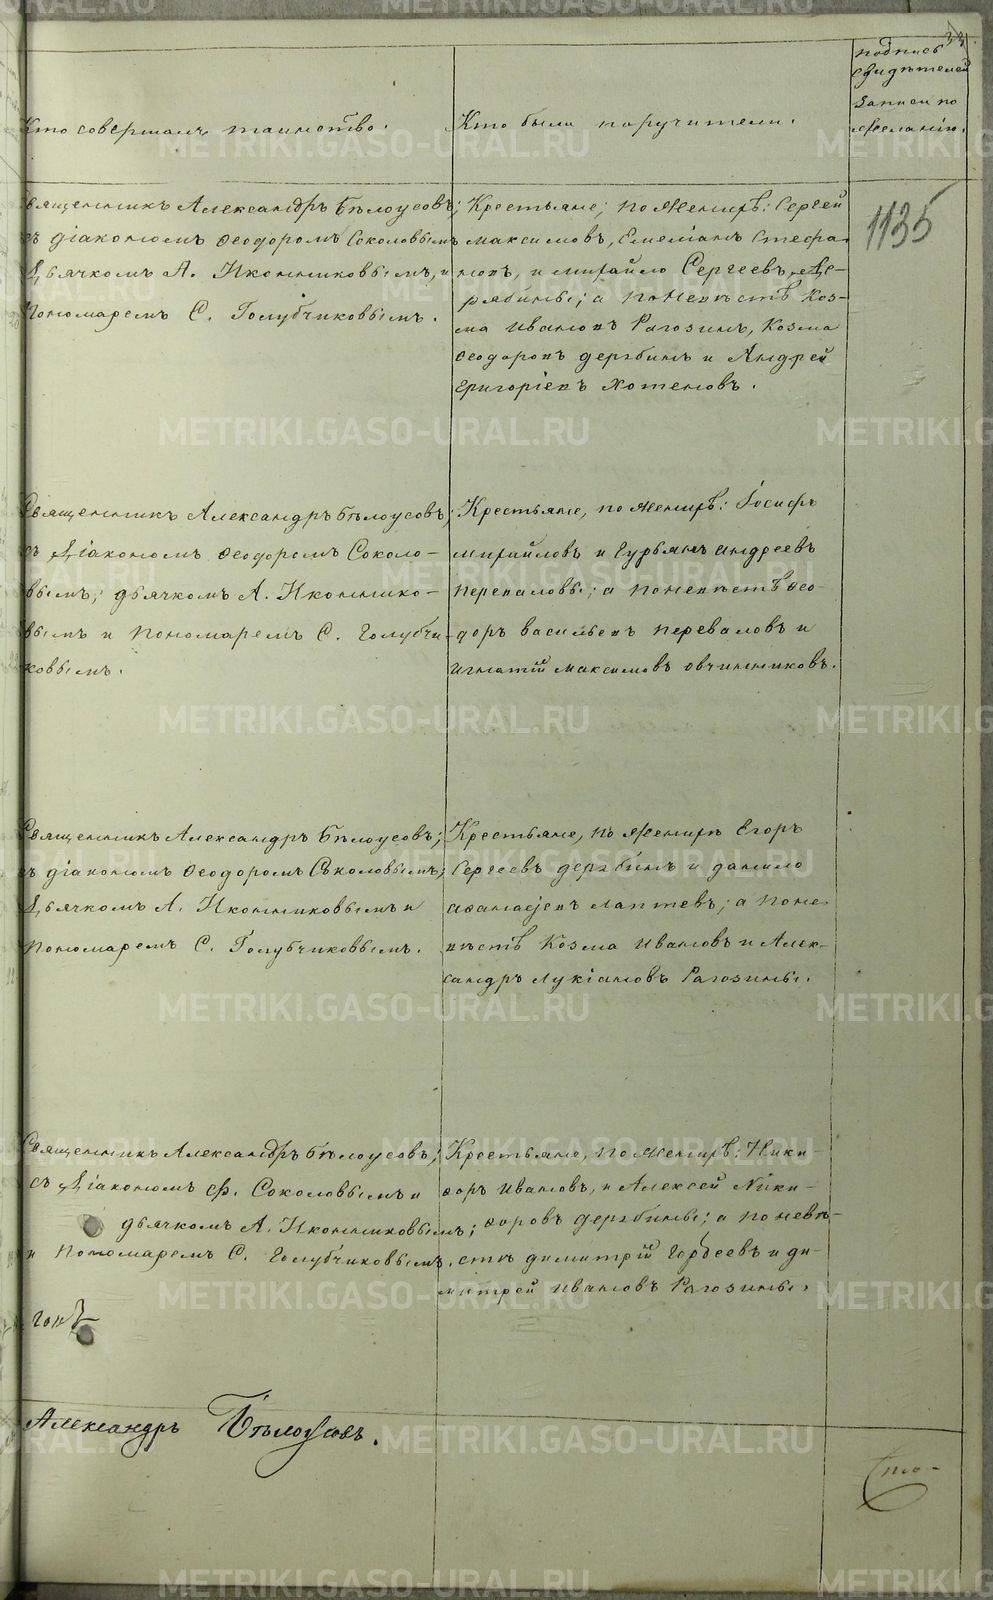 33
Кто совершалъ таинство.
Кто были поручители.
подпись
свидѣтелей
записи по
желанію.
Священникъ Александръ Бѣлоусовъ;
съ діакономъ Ѳеодоромъ Соколовымъ
Дьячкомъ А. Иконниковымъ, и
Пономаремъ С. Голубчиковымъ.
Крестьяне; по Женихѣ: Сергей
Максимовъ, Емеліанъ Стефа-
новъ, и Михайло Сергеевъ Де-
рябины; а по Невѣстѣ Коз-
ма Ивановъ Рагозинъ, Козма
Ѳеодоровъ Дерябинъ и Андрей
Григоріевъ Хотеновъ.
1135
Священникъ Александръ Бѣлоусовъ;
съ Діакономъ Ѳеодоромъ Соколо-
вымъ; дьячкомъ А. Иконнико-
вымъ и Пономаремъ С. Голубчи-
ковымъ.
Крестьяне, по Женихѣ: Іосифъ
Михайловъ и Гурьянъ Андреевъ
Переваловы; а по невѣстѣ Ѳео-
доръ Васильевъ Переваловъ и
Игнатій Максимовъ Овчинниковъ.
Священникъ Александръ Бѣлоусовъ;
съ діакономъ Ѳеодоромъ Соколовымъ;
Дьячкомъ А. Иконниковымъ и
Пономаремъ С. Голубчиковымъ.
Крестьяне, по Женихѣ Егоръ
Сергеевъ Дерябинъ и Данило
Лаптевъ; а по не-
вѣстѣ Козма Ивановъ и Алек-
сандръ Лукіановъ Рагозины.
Священникъ Александръ Бѣлоусовъ;
съ Діакономъ Ф. Соколовымъ и
дьячкомъ А. Иконниковымъ;
и Пономаремъ С. Голубчиковымъ.
Крестьяне, по Женихѣ: Ники-
форъ Ивановъ, и Алексей Ники-
форовъ Дерябины; а по невѣ-
стѣ Димитрій Гордеевъ и Ди-
митрей Ивановъ Рагозины.
Александръ Бѣлоусовъ.
METRIKI.GASO-URAL.RU